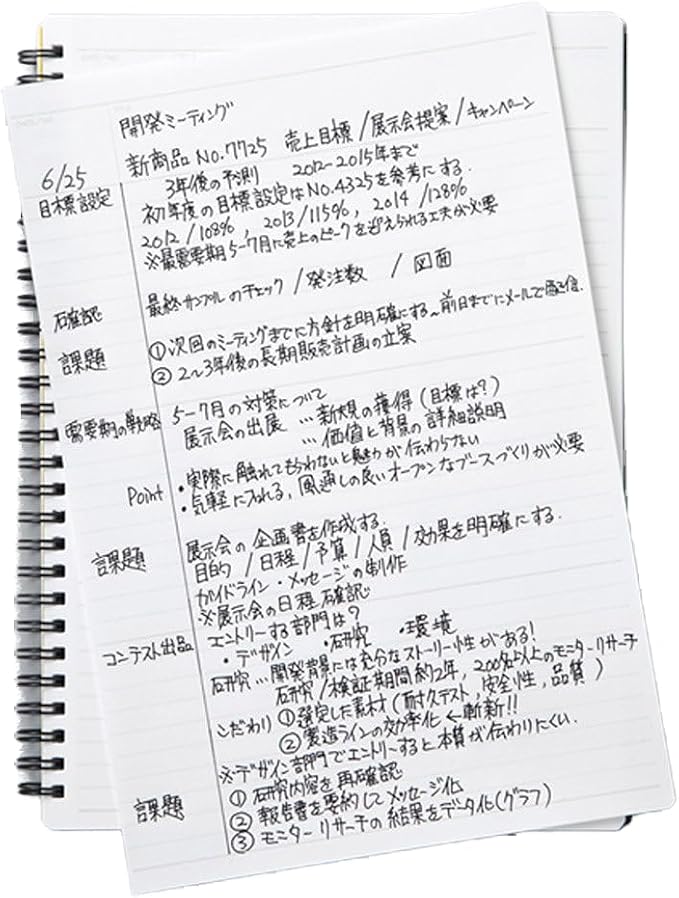 開発ミーティング
6/25 新商品 No.7725 売上目標/展示会提案/キャンペーン
目標設定 3年後の予測 2012-2015年まで
初年度の目標設定はNo.4325を参考にする.
2012/108%, 2013/115%, 2014/128%
※最需要期5-7月に売上のピークを迎えられる工夫が必要
確認 最終サンプルのチェック/発注数 /図面
課題 ①次回のミーティングまでに方針を明確にする~前日までにメールで配信.
②2~3年後の長期販売計画の立案
需要期の戦略 5-7月の対策について
展示会の出展 …新規の獲得(目標は?)
…価値と背景の詳細説明
Point ・実際に触れてもらわないと魅力が伝わらない
・気軽に入れる,風通しの良いオープンなブースづくりが必要
課題 展示会の企画書を作成する.
目的/日程/予算/人員/効果を明確にする.
ガイドライン・メッセージの制作
※展示会の日程確認
コンテスト出品 エントリーする部門は?
・デザイン ・研究 ・環境
研究…開発背景には充分なストーリー性がある!
研究/検証期間約2年,200名以上のモニターリサーチ
こだわり ①選定した素材(耐久テスト,安全性,品質)
②製造ラインの効率化←斬新!!
※デザイン部門でエントリーすると本質が伝わりにくい.
課題 ①研究内容を再確認
②報告書を要約してメッセージ化
③モニターリサーチの結果をデータ化(グラフ)